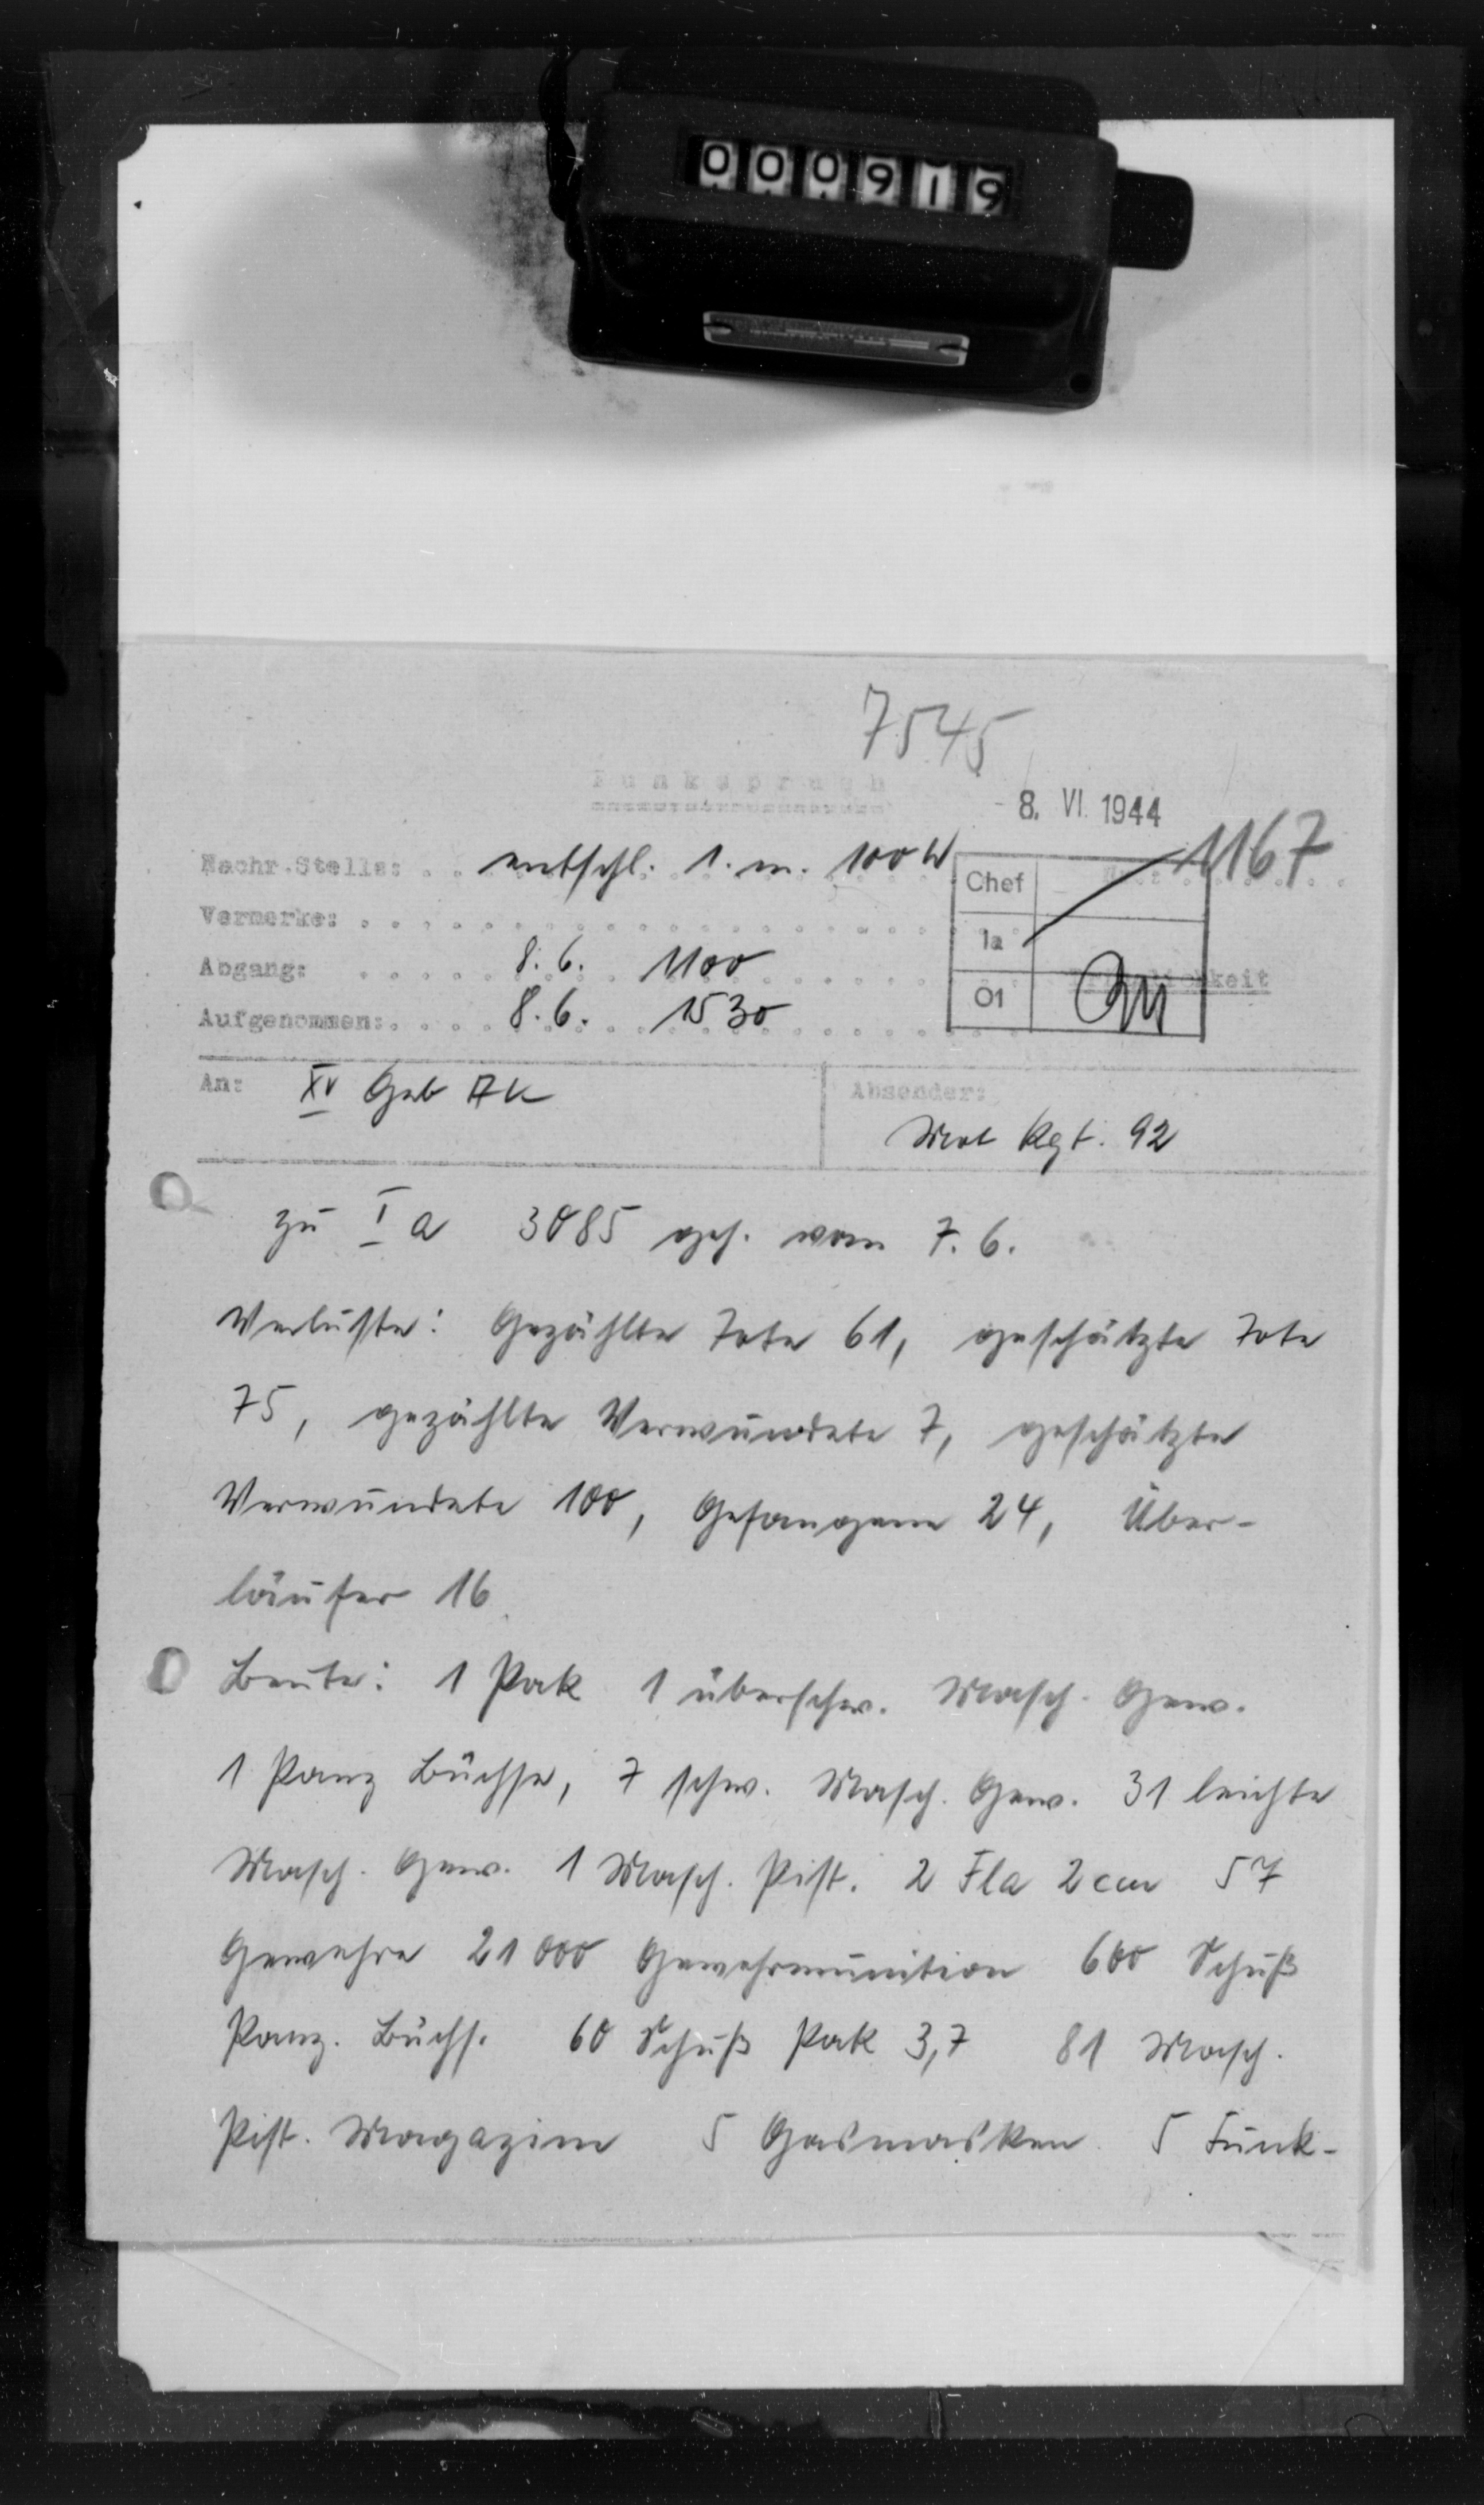 000919
7545
Funkspruch
8. VI. 1944
1167
Nachr.Stelle: entschl. 1. m. 100 W
Chef
Vermerke:
Ia
Abgang: 8. 6. 1100
O1
Aufgenommen: 8. 6. 1530
An: XV Geb AK
Absender:
Mot Rgt. 92
zu I a 3085 geh. vom 7. 6.
Verluste: Gezählte Tote 61, geschätzte Tote
75, gezählte Verwundete 7, geschätzte
Verwundete 100, Gefangene 24, Über-
läufer 16
Beute: 1 Pak 1 überschw. Masch. Gew.
1 Panz Büchse, 7 schw. Masch. Gew. 31 leichte
Masch. Gew. 1 Masch. Pist. 2 Fla 2 cm 57
Gewehre 21 000 Gewehrmunition 600 Schuß
Panz. Büchs. 60 Schuß Pak 3,7 81 Masch.
Pist. Magazine 5 Gasmasken 5 Funk-